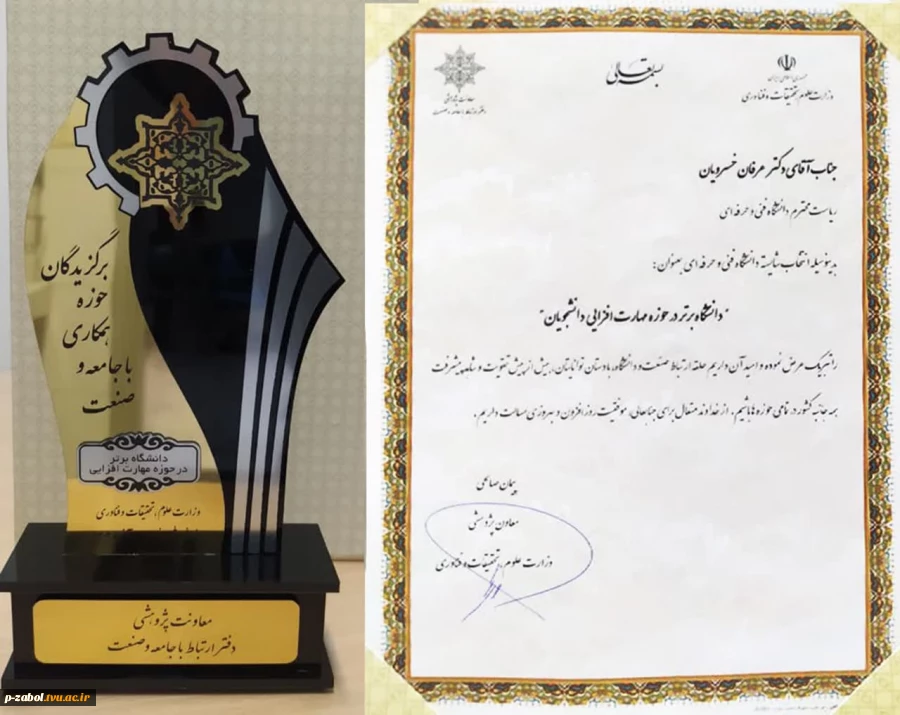 برگزیدگان
حوزه
همکاری
با جامعه و
صنعت
دانشگاه برتر
در حوزه مهارت افزایی
وزارت علوم، تحقیقات و فناوری
معاونت پژوهشی
دفتر ارتباط با جامعه و صنعت
p-zabol.tvu.ac.ir
بسمه تعالی
جمهوری اسلامی ایران
وزارت علوم، تحقیقات و فناوری
معاونت پژوهشی
دفتر ارتباط با جامعه و صنعت
جناب آقای دکتر عرفان خسرویان
ریاست محترم دانشگاه فنی و حرفه ای
بدینوسیله انتخاب شایسته دانشگاه فنی و حرفه ای بعنوان:
"دانشگاه برتر در حوزه مهارت افزایی دانشجویان"
را تبریک عرض نموده و امید آن داریم حلقه ارتباط صنعت و دانشگاه، با دستان توانایتان، بیش از پیش تقویت و شاهد پیشرفت
همه جانبه کشور در تمامی حوزه ها باشیم. از خداوند متعال برای جنابعالی، موفقیت روز افزون و بهروزی مسألت داریم.
پیمان صالحی
معاون پژوهشی
وزارت علوم، تحقیقات و فناوری